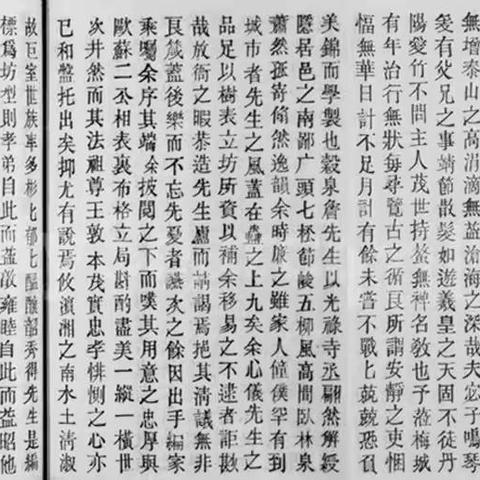 無增泰山之高涓滴無益滄海之深哉夫宓子鳴琴
愛有父兄之事靖節散髮如遊羲皇之天固不徒丹
陽愛竹不問主人茂世持螯無裨名敎也予蒞梅城
有年治行無狀每尋覽古之循良所謂安靜之吏悃
愊無華日計不足月計有餘未嘗不戰上兢兢恐負
美錦而學製也穀泉詹先生以光祿寺丞翩然解綬
隱居邑之南鄙广頭七松節峻五柳風高間臥林泉
蕭然孤寄翛然逸韻余時廉之雖家人僮僕罕有到
城市者先生之風蓋在蠱之上九矣余心儀先生之
品足以樹表立坊所資以補余移易之不逮者詎尠
哉放衙之暇恭造先生廬而謁焉挹其清議無非
艮箴蓋後樂而不忘先憂者讌次之餘因出手編家
乘囑余序其端余披閱之下而嘆其用意之忠厚與
歐蘇二公相表裏布格立局斟酌盡美一縱一橫世
次井然而其法祖尊王敦本茂實忠孝悱惻之心亦
已和盤托出矣抑尤有說焉攸濱湘之南水土清淑
故巨室世族率多彬匕郁匕醞釀韶秀得先生是編
標爲坊型則孝弟自此而益敬雍睦自此而益昭他